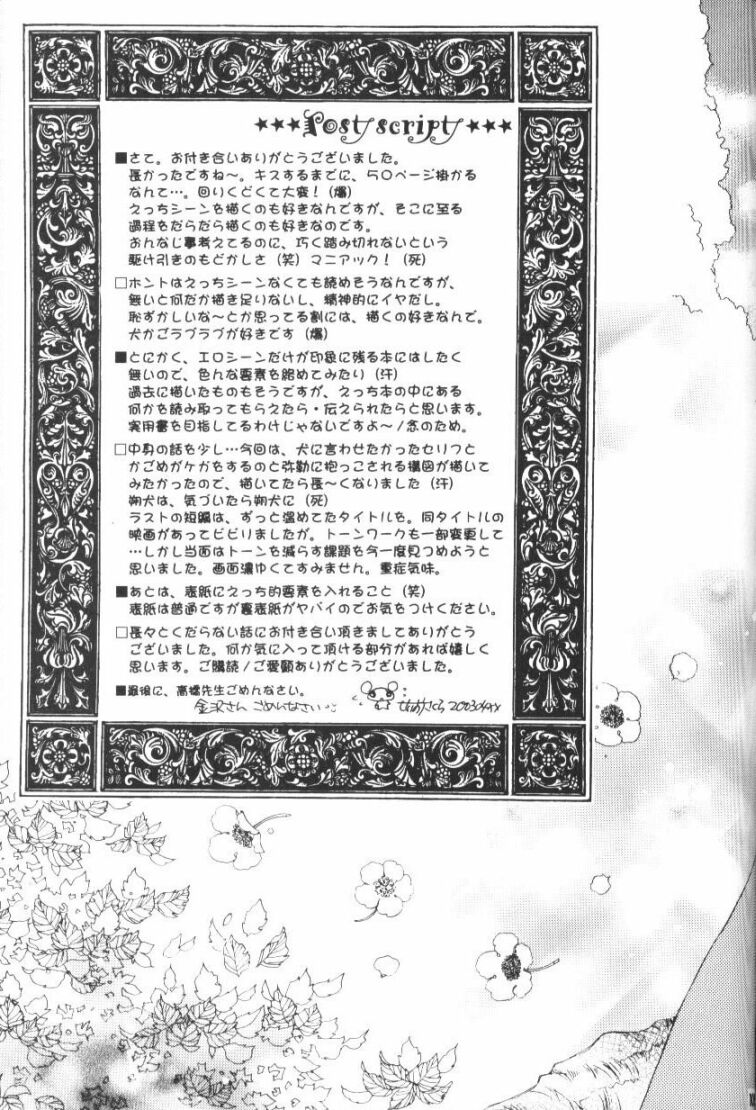 ★★★Post script★★★
■さて。お付き合いありがとうございました。
長かったですね〜。キスするまでに、50ページ掛かる
なんて…。回りくどくて大変！（爆）
えっちシーンを描くのも好きなんですが、そこに至る
過程をだらだら描くのも好きなのです。
おんなじ事考えてるのに、巧く踏み切れないという
駆け引きのもどかしさ（笑）マニアック！（死）
□ホントはえっちシーンなくても読めそうなんですが、
無いと何だか描き足りないし、精神的にイヤだし。
恥ずかしいな〜とか思ってる割には、描くの好きなんで。
犬かごラブラブが好きです（爆）
■とにかく、エロシーンだけが印象に残る本にはしたく
無いので、色んな要素を絡めてみたり（汗）
過去に描いたものもそうですが、えっち本の中にある
何かを読み取ってもらえたら・伝えられたらと思います。
実用書を目指してるわけじゃないですよ〜/念のため。
□中身の話を少し…今回は、犬に言わせたかったセリフと
かごめがケガをするのと弥勒に抱っこされる構図が描いて
みたかったので、描いてたら長〜くなりました（汗）
朔犬は、気づいたら朔犬に（死）
ラストの短編は、ずっと温めてたタイトルを。同タイトルの
映画があってビビりましたが。トーンワークも一部変更して
…しかし当面はトーンを減らす課題を今一度見つめようと
思いました。画面濃ゆくてすみません。重症気味。
■あとは、表紙にえっち的要素を入れること（笑）
表紙は普通ですが裏表紙がヤバイのでお気をつけください。
□長々とくだらない話にお付き合い頂きましてありがとう
ございました。何か気に入って頂ける部分があれば嬉しく
思います。ご購読/ご愛顧ありがとうございました。
■最後に、高橋先生ごめんなさい。
金沢さん ごめんなさい